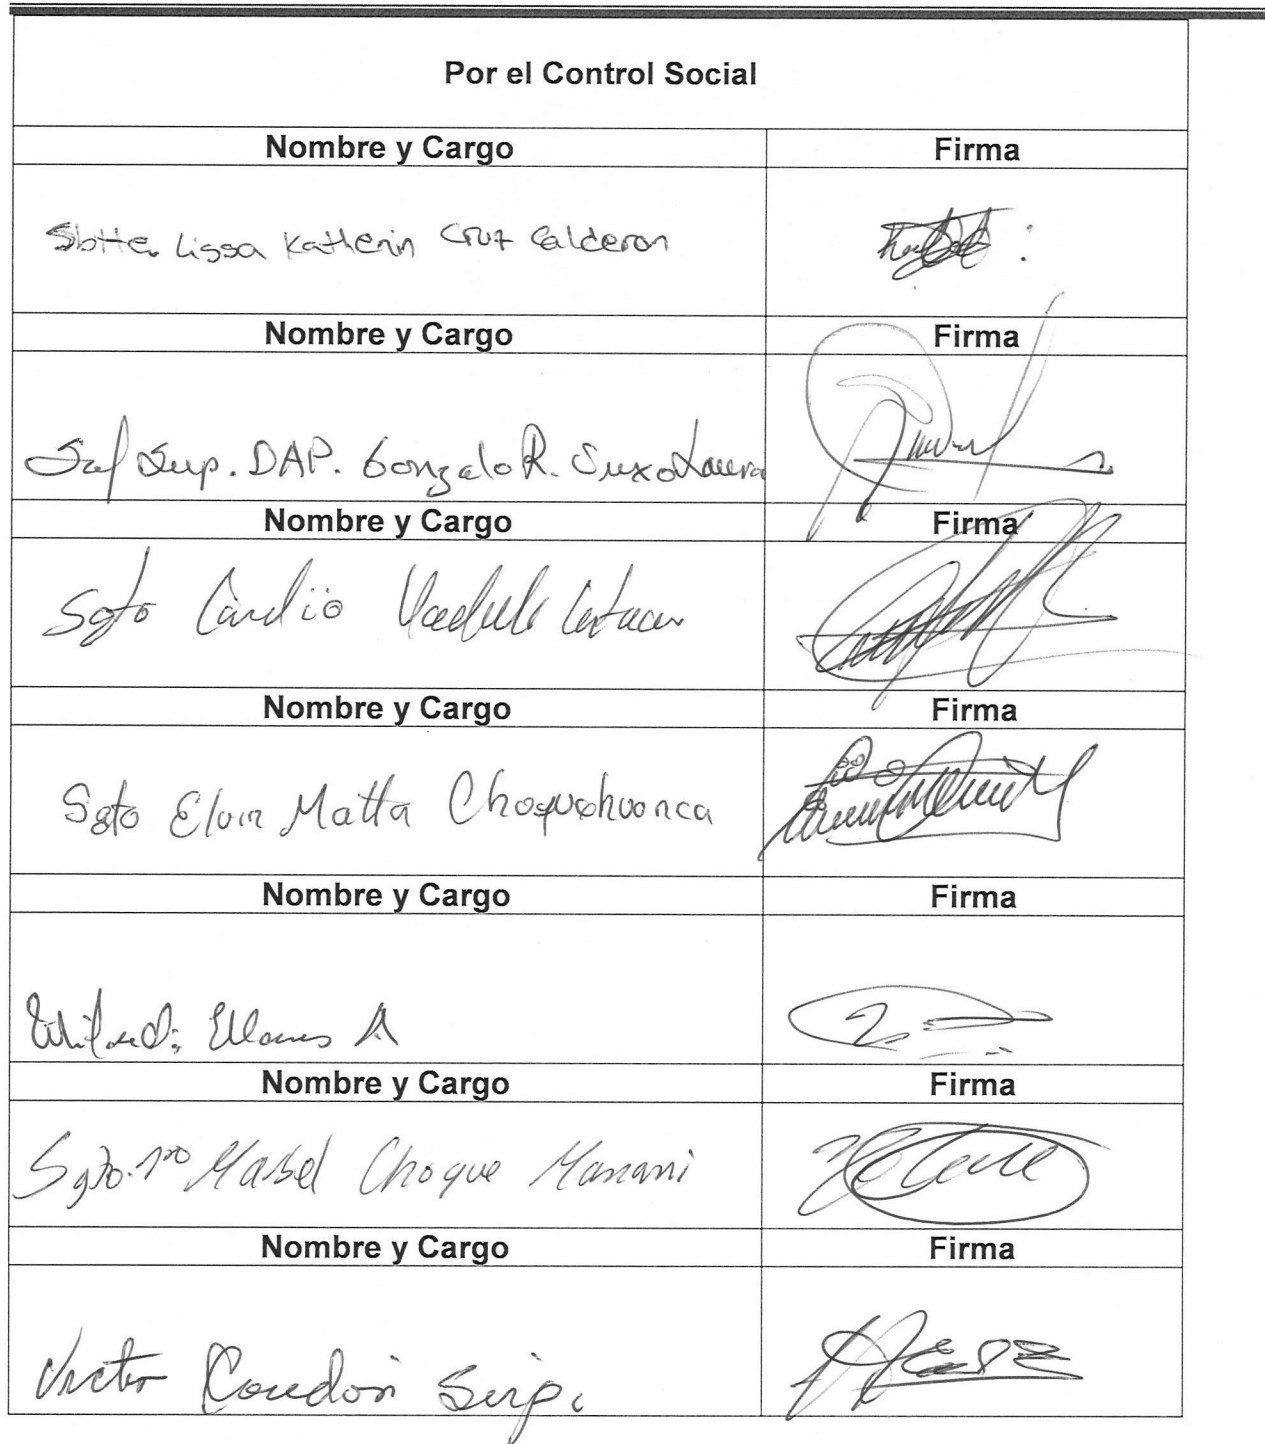 Por el Control Social
Nombre y Cargo Firma
Sbtte. Lissa Katherin Cruz Calderon
Nombre y Cargo Firma
Sof Sup. DAP. Gonzalo R. Suxo Laura
Nombre y Cargo Firma
Sgto
Nombre y Cargo Firma
Sgto Elvin Matta Choquehuanca
Nombre y Cargo Firma
Nombre y Cargo Firma
Sgto. 1ro Mabel Choque Mamani
Nombre y Cargo Firma
Victor Condori